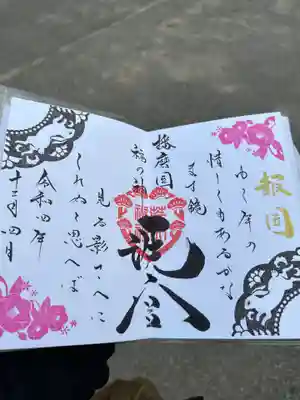 報国
ゆく年の
惜しくもあるかな
ます鏡
播磨国
見る影さへに
くれぬと思へば
令和四年
十二月四日